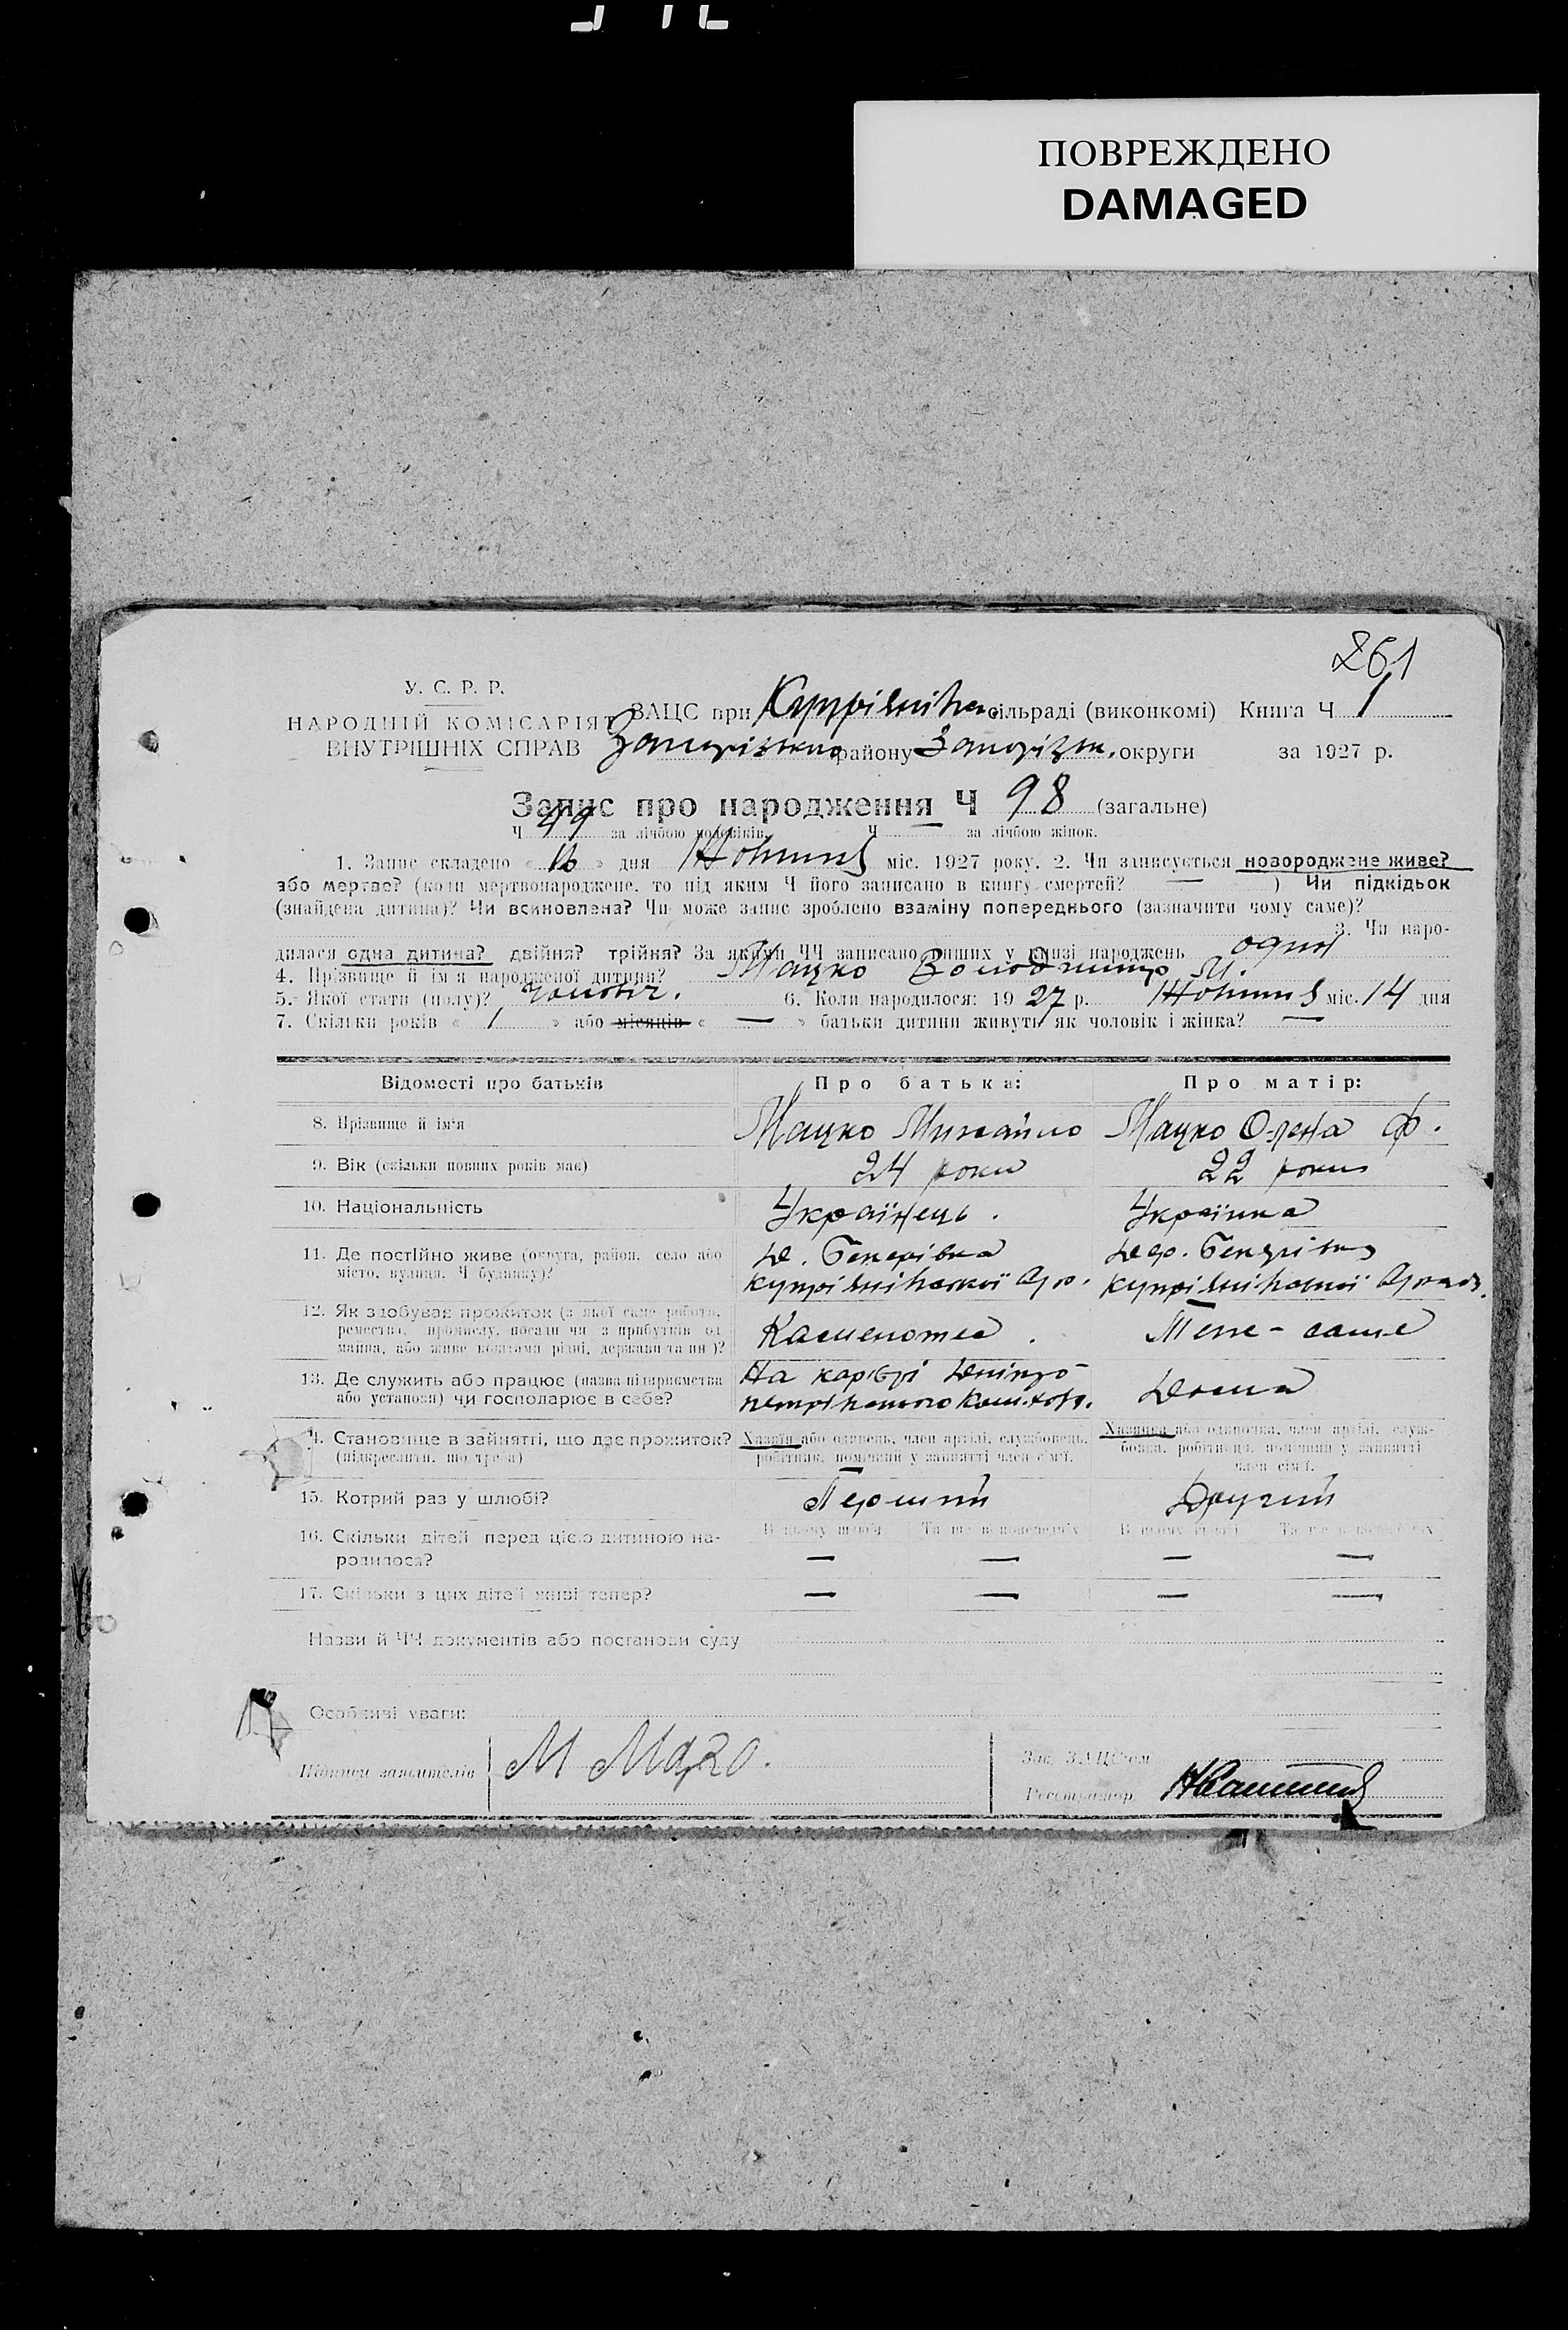 ПОВРЕЖДЕНО
DAMAGED
261
У. С. Р. Р.
НАРОДНІЙ КОМІСАРІЯТ
ВНУТРІШНІХ СПРАВ
ЗАЦС при сільраді (виконкомі) Книга Ч 1
району Запоріж. округи за 1927 р.
Запис про народження Ч 98 (загальне)
Ч 49 за лічбою чоловіків. Ч — за лічбою жінок.
1. Запис складено « 16 » дня міс. 1927 року. 2. Чи записується новороджене живе?
або мертве? (коли мертвонароджене, то під яким Ч його записано в книгу смертей? — ) Чи підкідьок
(знайдена дитина)? Чи всиновлена? Чи може запис зроблено взаміну попереднього (зазначити чому саме)?
3. Чи наро-
дилася одна дитина? двійня? трійня? За якими ЧЧ записано инших у книзі народжень одна
4. Прізвище й ім'я народженої дитини? Мацко Володимир М.
5. Якої стати (полу)? чоловіч. 6. Коли народилося: 19 27 р. міс. 14 дня
7. Скільки років « 1 » або місяців « — » батьки дитини живуть як чоловік і жінка? —
Відомості про батьків Про батька: Про матір:
8. Прізвище й ім'я Мацко Михайло Мацко Олена Ф.
9. Вік (скільки повних років має) 24 роки 22 роки
10. Національність Українець. Українка
11. Де постійно живе (округа, район, село або
місто, вулиця, Ч будинку)?
12. Як здобуває прожиток (з якої саме роботи,
ремества, промислу, посади чи з прибутків од
майна, або живе коштами рідні, держави та ин)? Каменотес. Теж-саме
13. Де служить або працює (назва підприємства
або установи) чи господарює в себе? На кар'єрі Дніпро- Дома
14. Становище в зайнятті, що дає прожиток?
(підкреслити, що треба)
Хазяїн або одинець, член артілі, службовець,
робітник, помічний у зайнятті член сім'ї.
Хазяйка або одиночка, член артілі, служ-
бовка, робітниця, помічний у зайнятті
член сім'ї.
15. Котрий раз у шлюбі? Перший Другий
16. Скільки дітей перед цією дитиною на-
родилося? — — — —
17. Скільки з цих дітей живі тепер? — — — —
Назви й ЧЧ документів або постанови суду
Особливі уваги:
Підписи заявителів М Мацко.
Зав. ЗАЦС'ом
Реєстратор